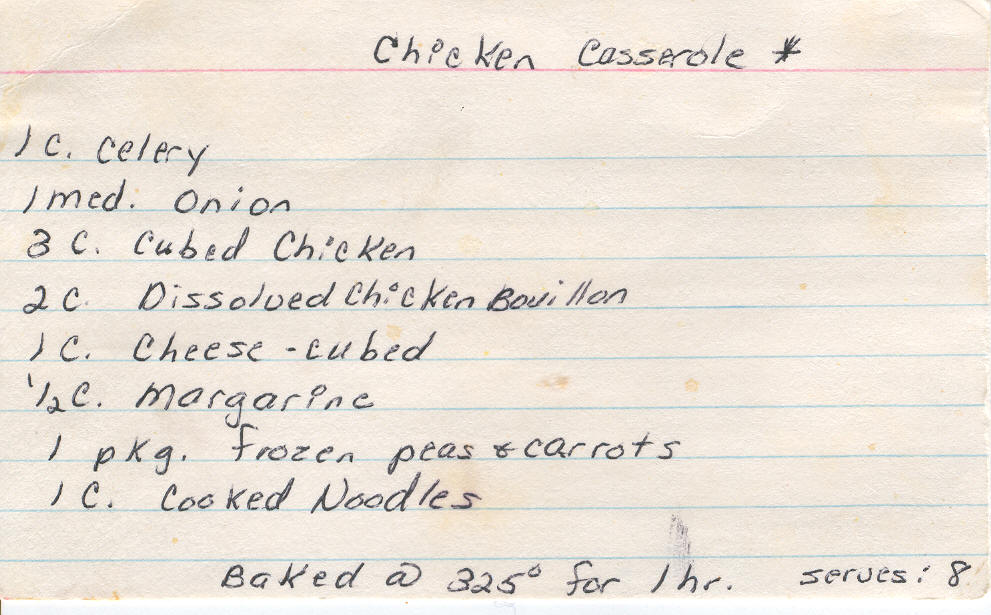 Chicken Casserole *
1 C. Celery
1 med. Onion
3 C. Cubed Chicken
2 C. Dissolved Chicken Bouillon
1 C. Cheese - cubed
1/2 C. Margarine
1 pkg. frozen peas & carrots
1 C. Cooked Noodles
Baked @ 325° for 1 hr. serves: 8